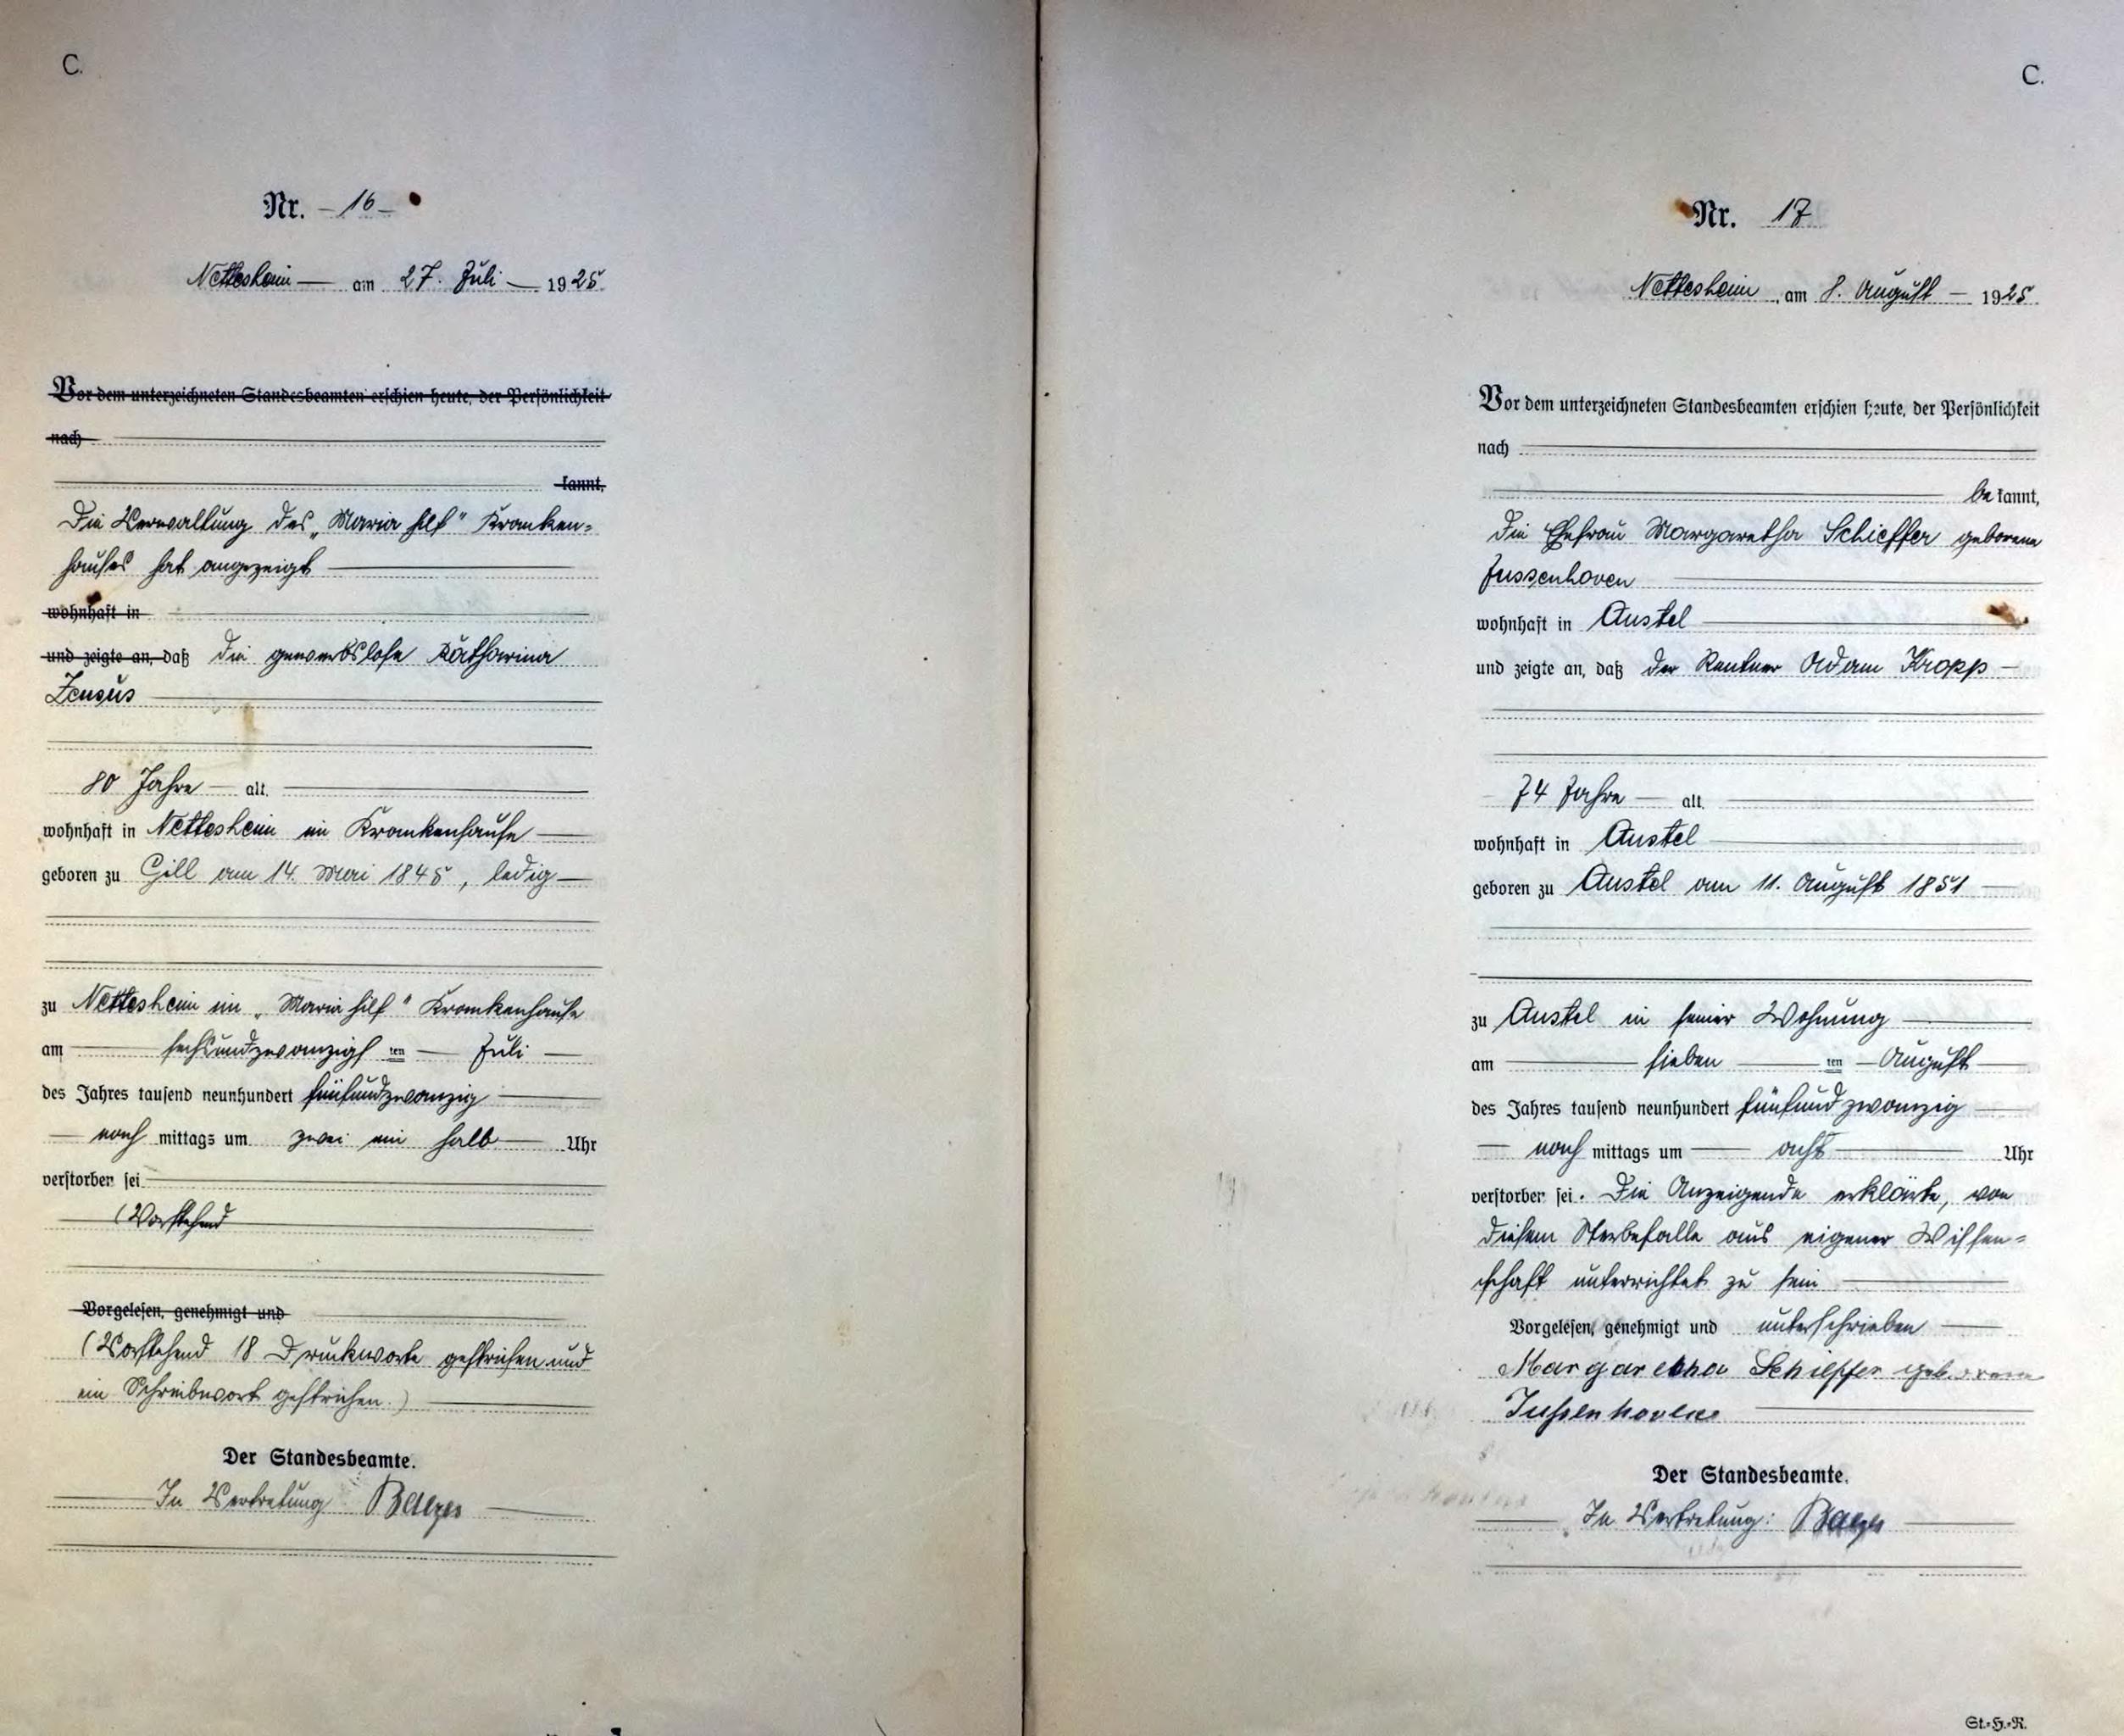 C.
Nr. – 16 –
Nettesheim — am 27. Juli — 1925.
Vor dem unterzeichneten Standesbeamten erschien heute, der Persönlichkeit
nach
kannt,
Die Verwaltung des „Maria hilf" Kranken=
hauses hat angezeigt
wohnhaft in
und zeigte an, daß die gewerbslose Katharina
Zensus
80 Jahre — alt,
wohnhaft in Nettesheim im Krankenhause
geboren zu Gill am 14. Mai 1845, ledig
zu Nettesheim im „Maria hilf" Krankenhause
am sechsundzwanzigs ten Juli
des Jahres tausend neunhundert fünfundzwanzig
nach mittags um zwei ein halb Uhr
verstorben sei
(Vorstehend
Vorgelesen, genehmigt und
(Vorstehend 18 Druckworte gestrichen und
ein Schreibwort gestrichen.)
Der Standesbeamte.
In Vertretung
C.
Nr. 17
Nettesheim, am 8. August — 1925.
Vor dem unterzeichneten Standesbeamten erschien heute, der Persönlichkeit
nach
be kannt,
die Ehefrau Margaretha Schieffer geborene
Jussenhoven
wohnhaft in Anstel
und zeigte an, daß der Rentner Adam Kropp
74 Jahre — alt,
wohnhaft in Anstel
geboren zu Anstel am 11. August 1851
zu Anstel in seiner Wohnung
am sieben ten August
des Jahres tausend neunhundert fünfundzwanzig
nach mittags um acht Uhr
verstorben sei. Die Anzeigende erklärte, von
diesem Sterbefalle aus eigener Wissen=
schaft unterrichtet zu sein
Vorgelesen, genehmigt und unterschrieben
Margaretha Schieffer geborene
Jussenhoven
Der Standesbeamte.
In Vertretung:
St.=H.=R.